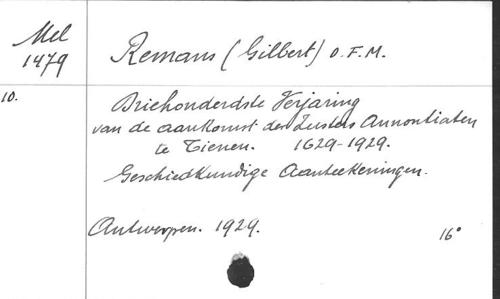 Mel
1479
Remans (Gilbert) O.F.M.
10.
Driehonderdste Verjaring
van de aankomst der Zusters Annontiaten
te Tienen. 1629-1929.
Geschiedkundige Aanteekeningen.
Antwerpen. 1929.
16°